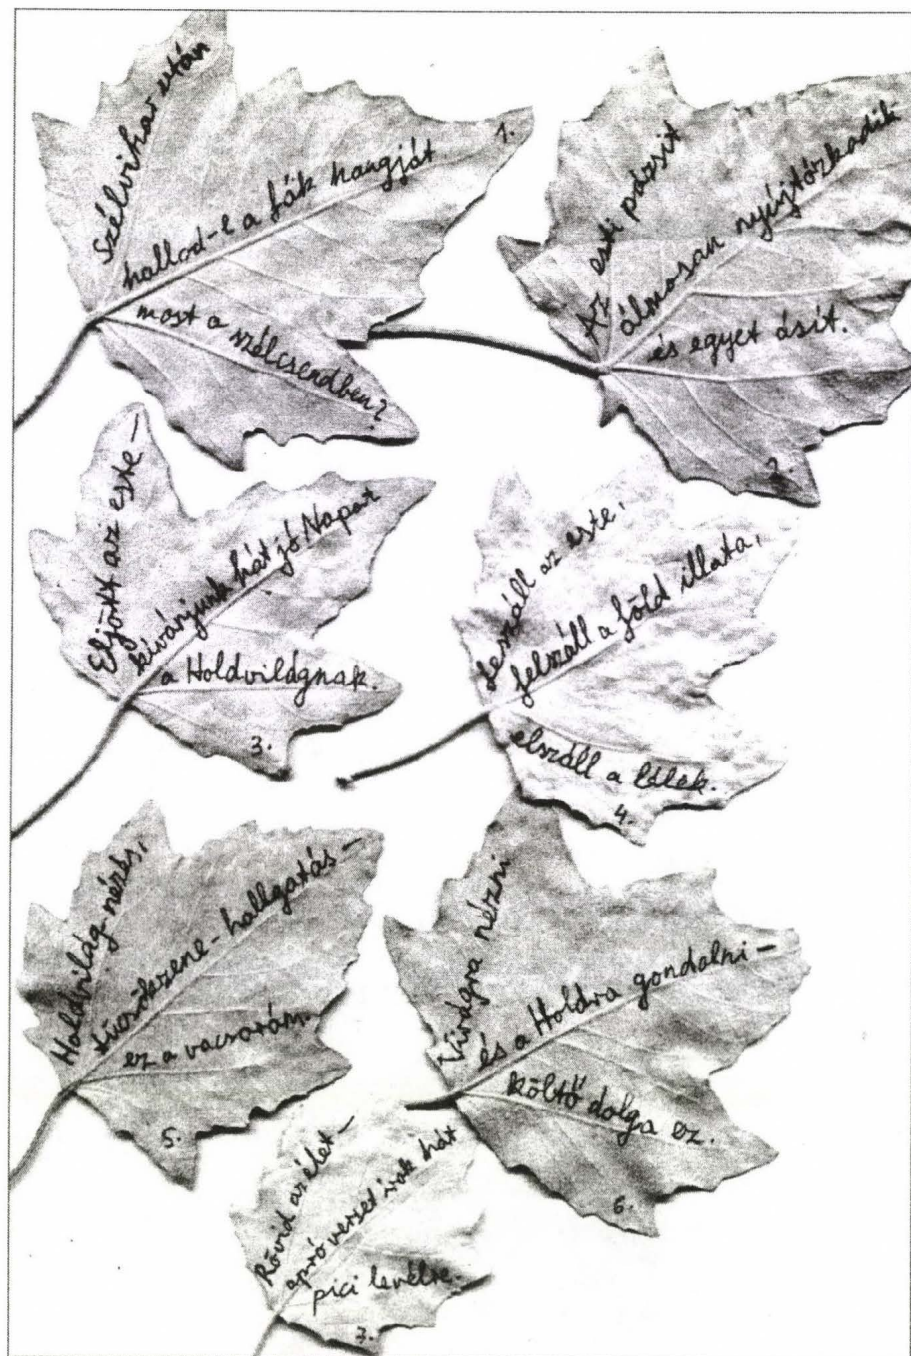 Szélvihar után
hallod-e a fák hangját
most a szélcsendben?
1.
Az esti pázsit
álmosan nyújtózkodik
és egyet ásít.
2.
Eljött az este —
kívánjunk hát jó Napot
a Holdvilágnak.
3.
Leszáll az este,
felszáll a föld illata,
elszáll a lélek.
4.
Holdvilág-nézés,
tücsökzene-hallgatás —
ez a vacsorám.
5.
Virágra nézni
és a Holdra gondolni —
költő dolga ez.
6.
Rövid az élet —
apró verset írok hát
pici levélre.
7.